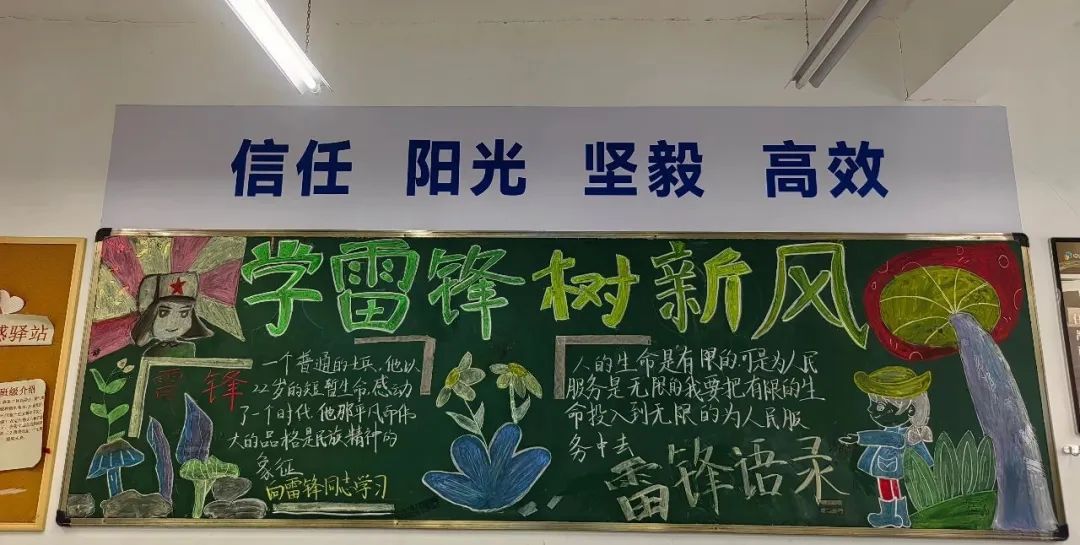 信任 阳光 坚毅 高效
学雷锋 树新风
雷锋
一个普通的士兵，他以
22岁的短暂生命感动
了一个时代 他那平凡而伟
大的品格是民族精神的
象征
向雷锋同志学习
人的生命是有限的可是为人民
服务是无限的我要把有限的生
命投入到无限的为人民服
务中去
雷锋语录
感驿站
班级介绍